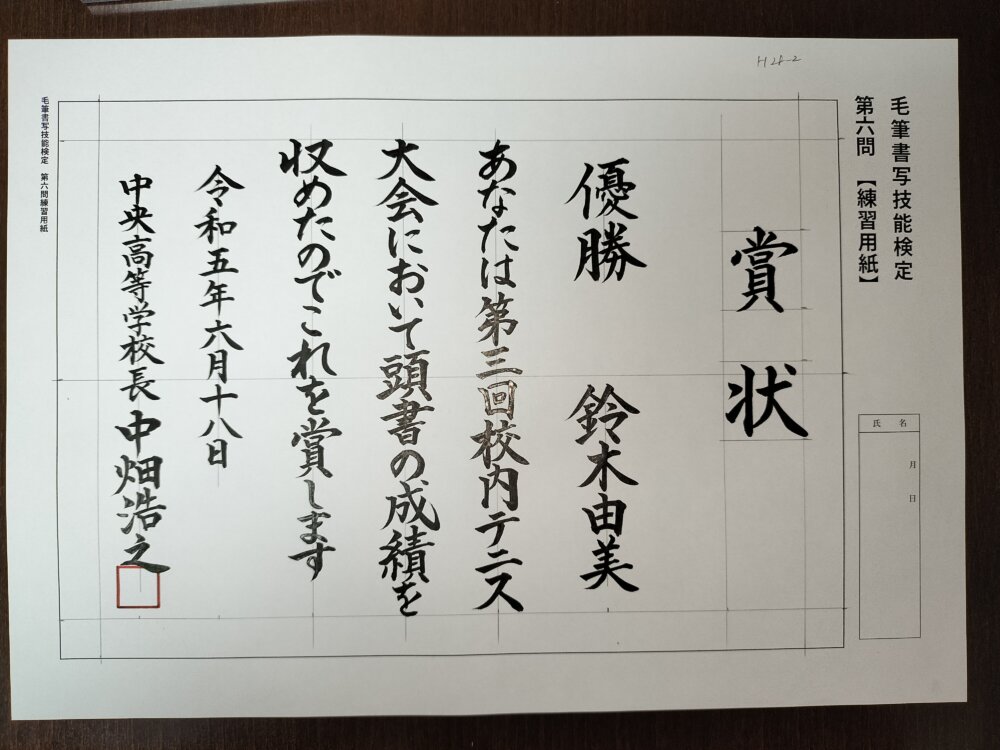 H28-2
毛筆書写技能検定
第六問 【練習用紙】
氏 名
月 日
賞状
優勝 鈴木由美
あなたは第三回校内テニス
大会において頭書の成績を
収めたのでこれを賞します
令和五年六月十八日
中央高等学校長 中畑浩之
毛筆書写技能検定 第六問練習用紙